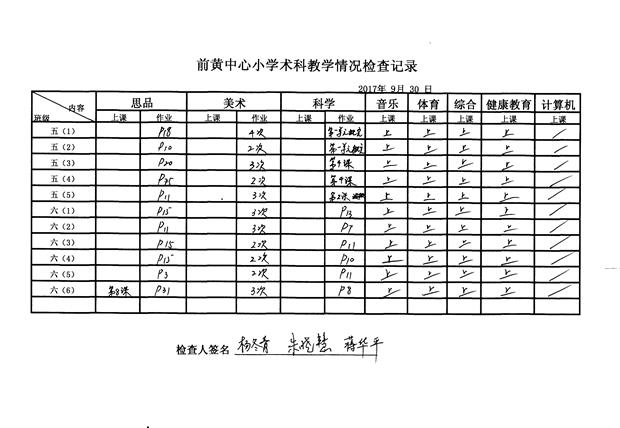 前黄中心小学术科教学情况检查记录
2017年 9月 30 日
内容 班级 思品 美术 科学 音乐 体育 综合 健康教育 计算机
上课 作业 上课 作业 上课 作业 上课 上课 上课 上课 上课
五（1） P18 4次 上 上 上 上 /
五（2） P10 2次 上 上 上 上 /
五（3） P20 3次 第4课 上 上 上 上 /
五（4） P25 2次 第4课 上 上 上 上 /
五（5） P11 3次 第2课 上 上 上 上 /
六（1） P15 3次 P13 上 上 上 上 /
六（2） P11 3次 P7 上 上 上 上 /
六（3） P15 2次 P11 上 上 上 上 /
六（4） P15 2次 P10 上 上 上 上 /
六（5） P3 2次 P11 上 上 上 上 /
六（6） 第8课 P31 3次 P8 上 上 上 上 /
检查人签名 杨冬青 朱悦慧 蒋华平